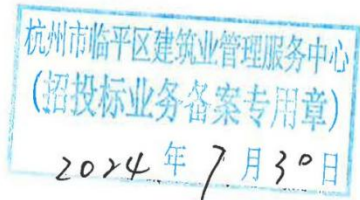 杭州市临平区建筑业管理服务中心
(招投标业务备案专用章)
2024年7月30日